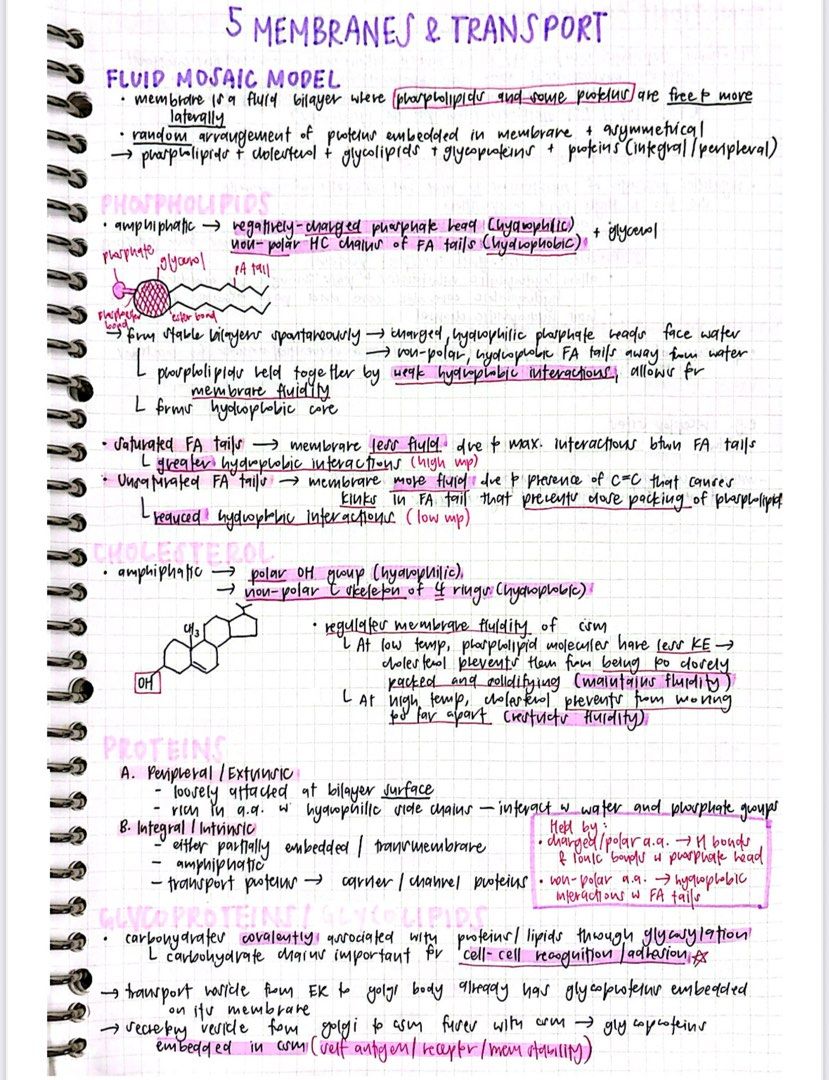 5 MEMBRANES & TRANSPORT
FLUID MOSAIC MODEL
• membrane is a fluid bilayer where phospholipids and some proteins are free to move
laterally
• random arrangement of proteins embedded in membrane + asymmetrical
→ phospholipids + cholesterol + glycolipids + glycoproteins + proteins (integral/peripheral)
PHOSPHOLIPIDS
• amphiphatic → negatively-charged phosphate head (hydrophilic)
non-polar HC chains of FA tails (hydrophobic) + glycerol
phosphate
glycerol
FA tail
phosphoester
bond
ester bond
→ form stable bilayers spontaneously → charged, hydrophilic phosphate heads face water
→ non-polar, hydrophobic FA tails away from water
└ phospholipids held together by weak hydrophobic interactions, allows for
membrane fluidity
└ forms hydrophobic core
• Saturated FA tails → membrane less fluid due to max. interactions btwn FA tails
└ greater hydrophobic interactions (high mp)
• Unsaturated FA tails → membrane more fluid due to presence of C=C that causes
kinks in FA tail that prevents close packing of phospholipid
└ reduced hydrophobic interactions (low mp)
CHOLESTEROL
• amphiphatic → polar OH group (hydrophilic)
→ non-polar C skeleton of 4 rings (hydrophobic)
CH3
OH
• regulates membrane fluidity of csm
└ At low temp, phospholipid molecules have less KE →
cholesterol prevents them from being too closely
packed and solidifying (maintains fluidity)
└ At high temp, cholesterol prevents from moving
too far apart (restricts fluidity)
PROTEINS
A. Peripheral / Extrinsic
- loosely attached at bilayer surface
- rich in a.a. w hydrophilic side chains — interact w water and phosphate groups
B. Integral / Intrinsic
- either partially embedded / transmembrane
- amphiphatic
- transport proteins → carrier / channel proteins
Held by:
• charged/polar a.a. → H bonds
& ionic bonds w phosphate head
• non-polar a.a. → hydrophobic
interactions w FA tails
GLYCOPROTEINS / GLYCOLIPIDS
• carbohydrates covalently associated with proteins/lipids through glycosylation
└ carbohydrate chains important for cell-cell recognition /adhesion ☆
→ transport vesicle from ER to golgi body already has glycoproteins embedded
on its membrane
→ secretory vesicle from golgi to csm fuses with csm → glycoproteins
embedded in csm (self antigen/receptor/mem stability)